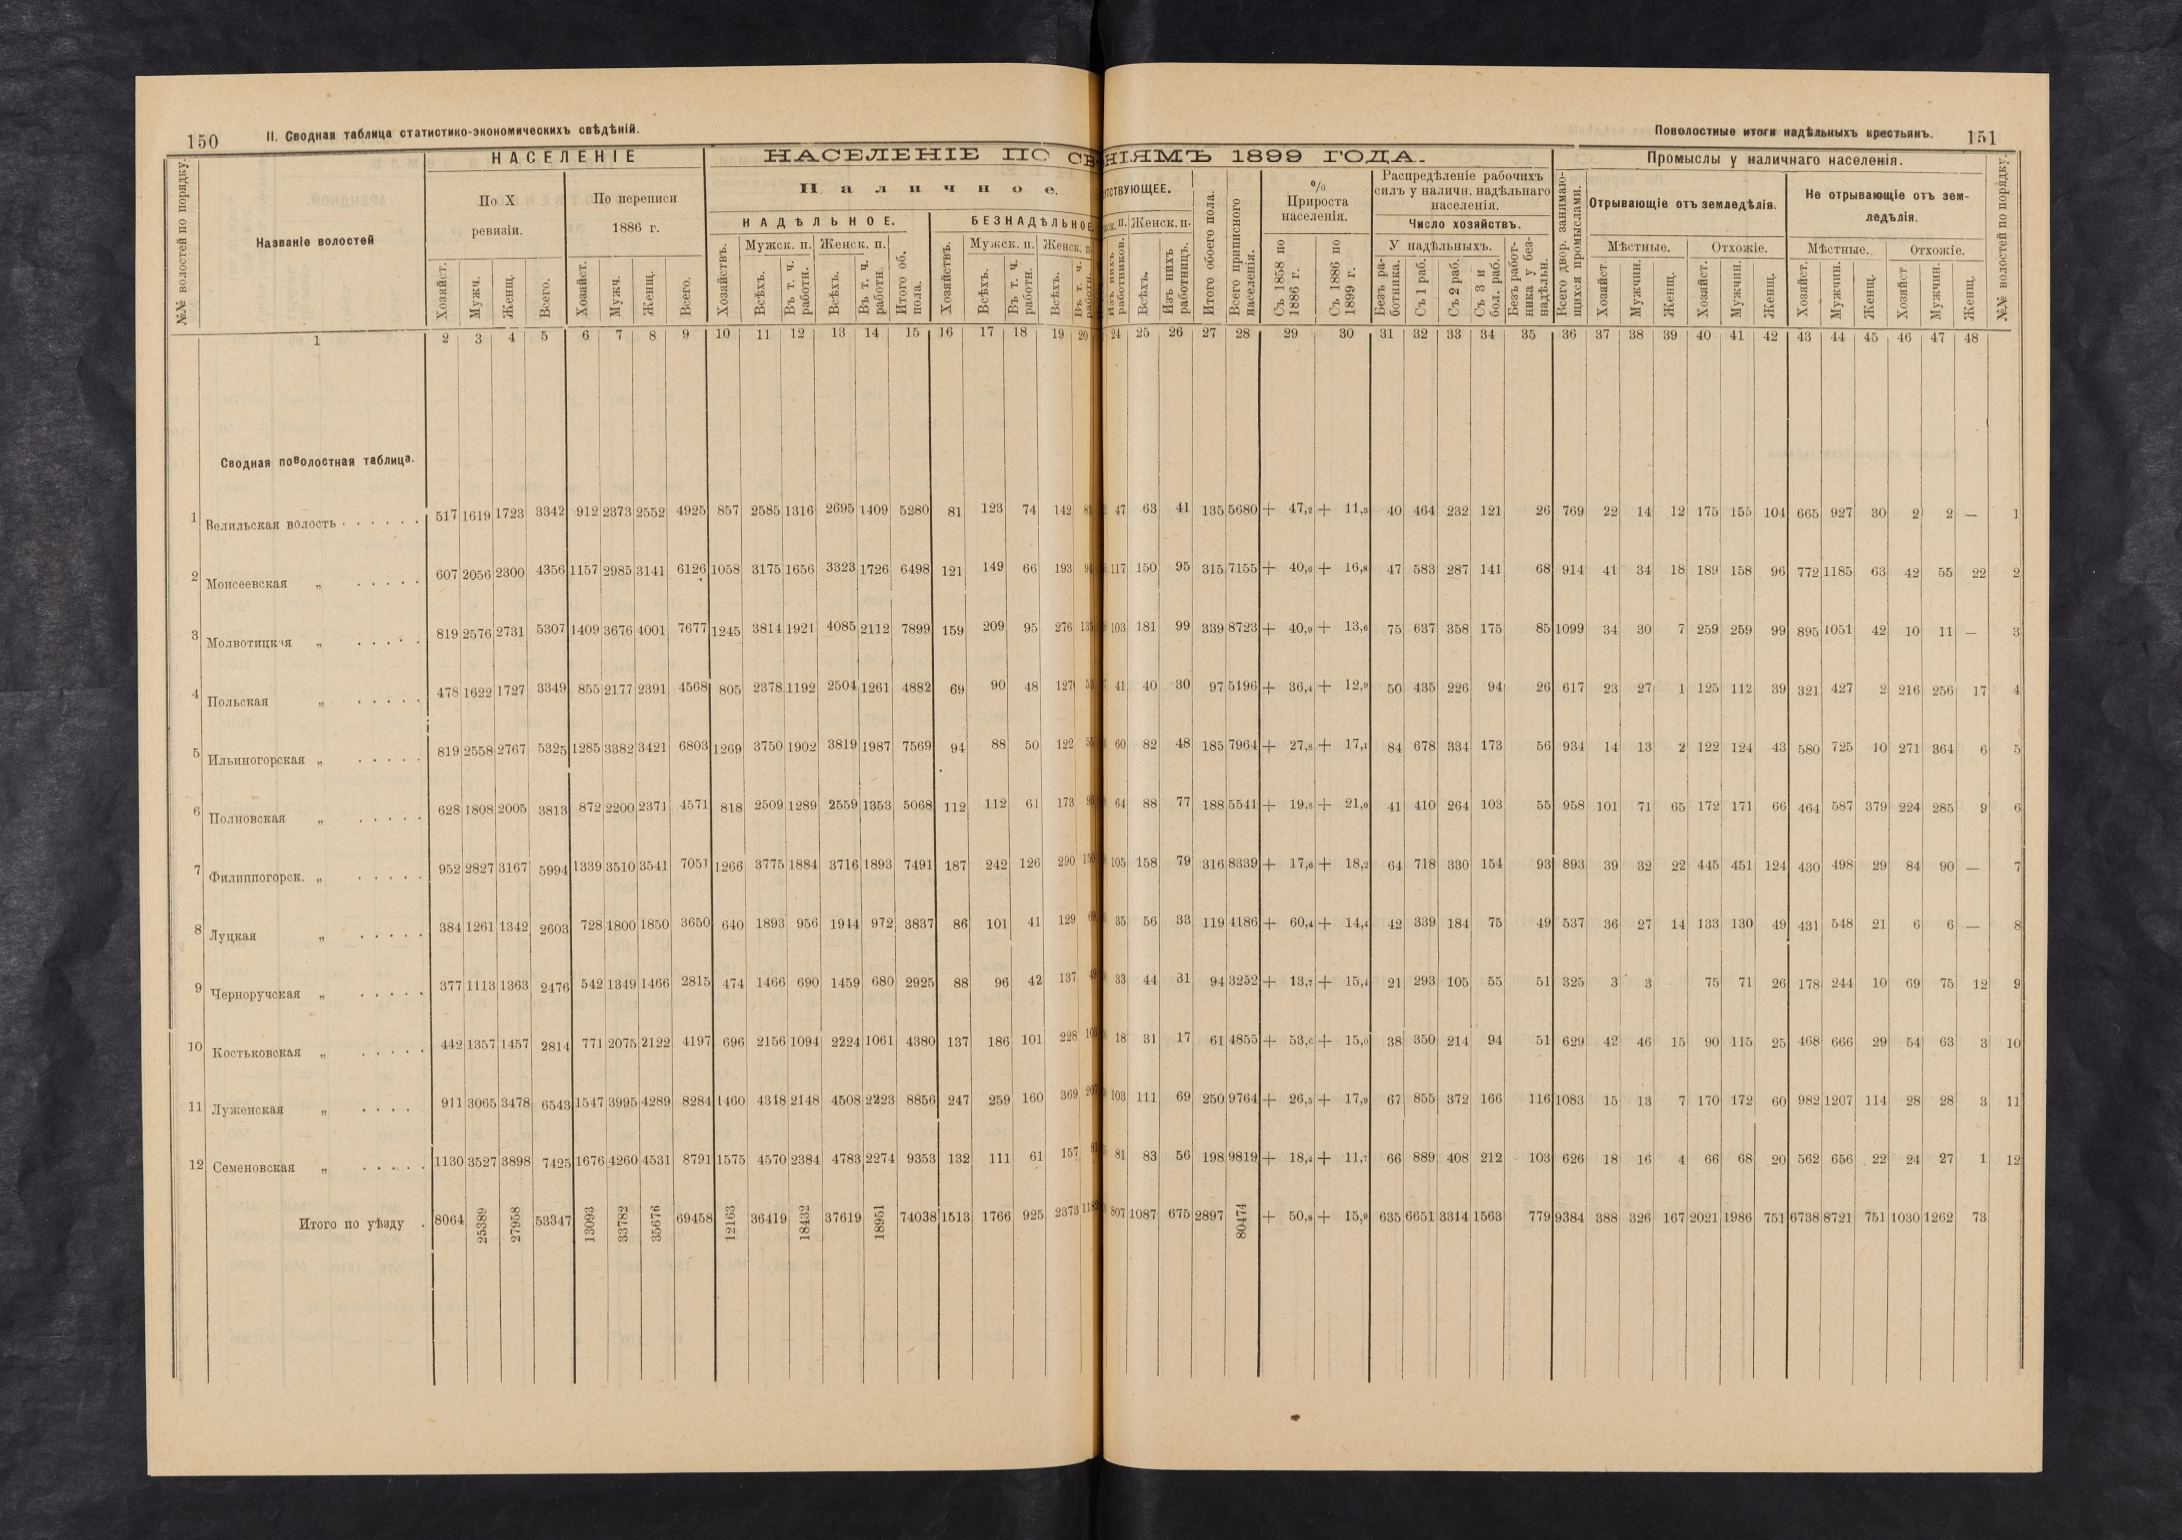 150 II. Сводная таблица статистико-экономическихъ свѣдѣній.
Поволостные итоги надѣльныхъ крестьянъ. 151
№№ волостей по порядку.
Названіе волостей
НАСЕЛЕНІЕ
По X ревизіи.
По переписи 1886 г.
Хозяйст. Мужч. Женщ. Всего. Хозяйст. Мужч. Женщ. Всего.
НАСЕЛЕНІЕ ПО СВ НІЯМЪ 1899 ГОДА.
Наличное.
НАДѢЛЬНОЕ. БЕЗНАДѢЛЬНОЕ
Хозяйствъ. Мужск. п. Женск. п. Итого об. пола. Хозяйствъ. Мужск. п. Женск. п.
Всѣхъ. Въ т. ч. работн. Всѣхъ. Въ т. ч. работн. Всѣхъ. Въ т. ч. работн. Всѣхъ. Въ т. ч.
тствующее.
Женск. п.
Изъ нихъ работниковъ. Всѣхъ. Изъ нихъ работницъ.
Итого обоего пола.
Всего приписного населенія.
% Прироста населенія.
Съ 1858 по 1886 г. Съ 1886 по 1899 г.
Распредѣленіе рабочихъ силъ у наличн. надѣльнаго населенія.
Число хозяйствъ.
У надѣльныхъ.
Безъ работника. Съ 1 раб. Съ 2 раб. Съ 3 и бол. раб. Безъ работника у безнадѣльн.
Всего двор. занимающихся промыслами.
Промыслы у наличнаго населенія.
Отрывающіе отъ земледѣлія. Не отрывающіе отъ земледѣлія.
Мѣстные. Отхожіе. Мѣстные. Отхожіе.
Хозяйст. Мужчин. Женщ. Хозяйст. Мужчин. Женщ. Хозяйст. Мужчин. Женщ. Хозяйст Мужчин. Женщ.
№№ волостей по порядку.
1 2 3 4 5 6 7 8 9 10 11 12 13 14 15 16 17 18 19 20 24 25 26 27 28 29 30 31 32 33 34 35 36 37 38 39 40 41 42 43 44 45 46 47 48
Сводная поволостная таблица.
1 Велильская волость 517 1619 1723 3342 912 2373 2552 4925 857 2585 1316 2695 1409 5280 81 123 74 142 47 63 41 135 5680 + 47,2 + 11,3 40 464 232 121 26 769 22 14 12 175 155 104 665 927 30 2 2 — 1
2 Моисеевская „ 607 2056 2300 4356 1157 2985 3141 6126 1058 3175 1656 3323 1726 6498 121 149 66 193 117 150 95 315 7155 + 40,6 + 16,8 47 583 287 141 68 914 41 34 18 189 158 96 772 1185 63 42 55 22 2
3 Молвотицкая „ 819 2576 2731 5307 1409 3676 4001 7677 1245 3814 1921 4085 2112 7899 159 209 95 276 135 103 181 99 339 8723 + 40,9 + 13,6 75 637 358 175 85 1099 34 30 7 259 259 99 895 1051 42 10 11 — 3
4 Польская „ 478 1622 1727 3349 855 2177 2391 4568 805 2378 1192 2504 1261 4882 69 90 48 127 41 40 30 97 5196 + 36,4 + 12,9 50 435 226 94 26 617 23 27 1 125 112 39 321 427 2 216 256 17 4
5 Ильиногорская „ 819 2558 2767 5325 1285 3382 3421 6803 1269 3750 1902 3819 1987 7569 94 88 50 122 60 82 48 185 7964 + 27,8 + 17,1 84 678 334 173 56 934 14 13 2 122 124 43 580 725 10 271 364 6 5
6 Полновская „ 628 1808 2005 3813 872 2200 2371 4571 818 2509 1289 2559 1353 5068 112 112 61 173 64 88 77 188 5541 + 19,8 + 21,0 41 410 264 103 55 958 101 71 65 172 171 66 464 587 379 224 285 9 6
7 Филиппогорск. „ 952 2827 3167 5994 1339 3510 3541 7051 1266 3775 1884 3716 1893 7491 187 242 126 290 105 158 79 316 8339 + 17,6 + 18,2 64 718 330 154 93 893 39 32 22 445 451 124 430 498 29 84 90 — 7
8 Луцкая „ 384 1261 1342 2603 728 1800 1850 3650 640 1893 956 1944 972 3837 86 101 41 129 35 56 33 119 4186 + 60,4 + 14,4 42 339 184 75 49 537 36 27 14 133 130 49 431 548 21 6 6 — 8
9 Черноручская „ 377 1113 1363 2476 542 1349 1466 2815 474 1466 690 1459 680 2925 88 96 42 137 33 44 31 94 3252 + 13,7 + 15,4 21 293 105 55 51 325 3 3 75 71 26 178 244 10 69 75 12 9
10 Костьковская „ 442 1357 1457 2814 771 2075 2122 4197 696 2156 1094 2224 1061 4380 137 186 101 228 18 31 17 61 4855 + 53,6 + 15,0 38 350 214 94 51 629 42 46 15 90 115 25 468 666 29 54 63 3 10
11 Луженская „ 911 3065 3478 6543 1547 3995 4289 8284 1460 4348 2148 4508 2223 8856 247 259 160 369 103 111 69 250 9764 + 26,5 + 17,9 67 855 372 166 116 1083 15 13 7 170 172 60 982 1207 114 28 28 3 11
12 Семеновская „ 1130 3527 3898 7425 1676 4260 4531 8791 1575 4570 2384 4783 2274 9353 132 111 61 157 81 83 56 198 9819 + 18,4 + 11,7 66 889 408 212 103 626 18 16 4 66 68 20 562 656 22 24 27 1 12
Итого по уѣзду 8064 25389 27958 53347 13093 33782 35676 69458 12163 36419 18432 37619 18951 74038 1513 1766 925 2373 807 1087 675 2897 80474 + 50,8 + 15,9 635 6651 3314 1563 779 9384 388 326 167 2021 1986 751 6738 8721 751 1030 1262 73